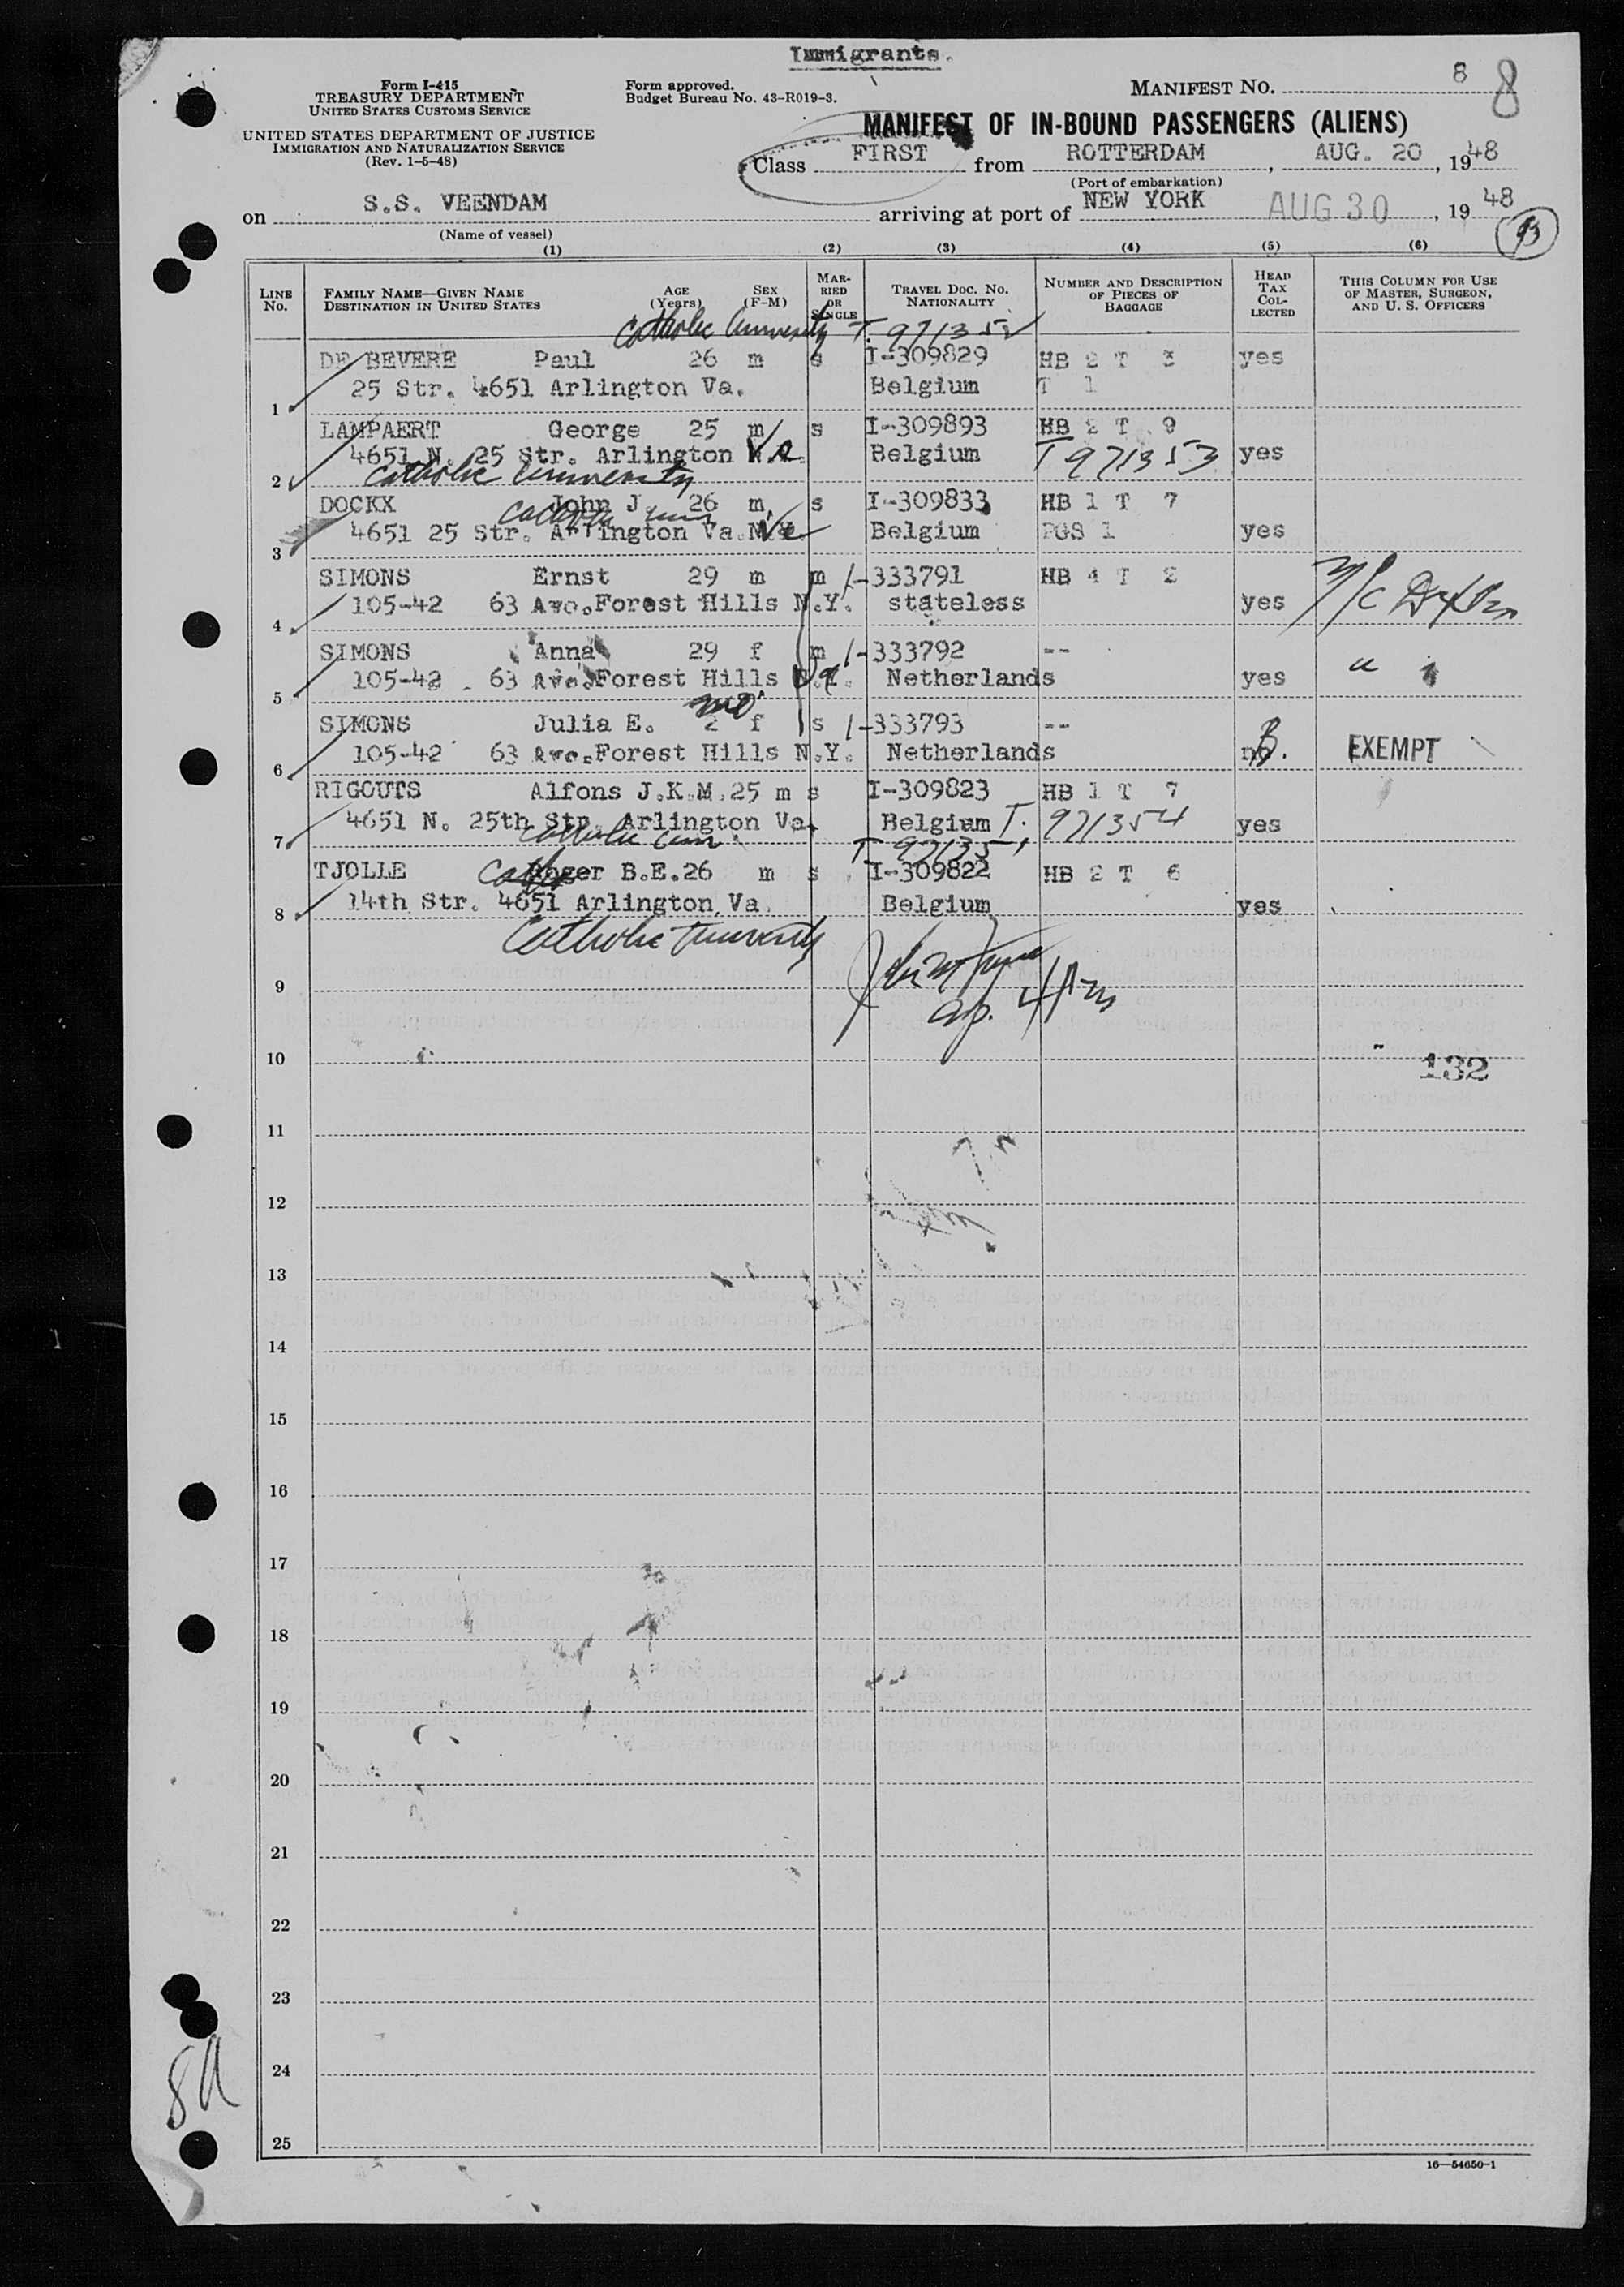 Immigrants.
Form I-415
TREASURY DEPARTMENT
UNITED STATES CUSTOMS SERVICE
UNITED STATES DEPARTMENT OF JUSTICE
IMMIGRATION AND NATURALIZATION SERVICE
(Rev. 1-5-48)
Form approved.
Budget Bureau No. 43-R019-3.
MANIFEST NO. 8 8
MANIFEST OF IN-BOUND PASSENGERS (ALIENS)
Class FIRST from ROTTERDAM, AUG. 20, 1948
(Port of embarkation)
on S.S. VEENDAM arriving at port of NEW YORK AUG 30, 1948
(Name of vessel)
93
(1) (2) (3) (4) (5) (6)
LINE NO. FAMILY NAME—GIVEN NAME DESTINATION IN UNITED STATES AGE (Years) SEX (F-M) MARRIED OR SINGLE TRAVEL DOC. NO. NATIONALITY NUMBER AND DESCRIPTION OF PIECES OF BAGGAGE HEAD TAX COLLECTED THIS COLUMN FOR USE OF MASTER, SURGEON, AND U. S. OFFICERS
Catholic University T. 971352
DE BEVERE Paul 26 m s I-309829 HB 2 T 3 yes
1 25 Str. 4651 Arlington Va. Belgium T 1
LAMPAERT George 25 m s I-309893 HB 2 T 9
4651 N. 25 Str. Arlington Va. Belgium T 971353 yes
2 Catholic University
DOCKX John J. 26 m s I-309833 HB 1 T 7
Catholic Univ
3 4651 25 Str. Arlington Va. Belgium PGS 1 yes
SIMONS Ernst 29 m m I-333791 HB 4 T 2
4 105-42 63 Ave. Forest Hills N.Y. stateless yes
SIMONS Anna 29 f m I-333792 --
5 105-42 63 Ave. Forest Hills N.Y. Netherlands yes "
mo
SIMONS Julia E. 2 f s I-333793 --
6 105-42 63 Ave. Forest Hills N.Y. Netherlands no EXEMPT
RIGOUTS Alfons J.K.M. 25 m s I-309823 HB 1 T 7
4651 N. 25th Str. Arlington Va. Belgium T. 971354 yes
7 Catholic Univ. T. 971351
TJOLLE Roger B.E. 26 m s I-309822 HB 2 T 6
8 14th Str. 4651 Arlington, Va. Belgium yes
Catholic University
9
10
132
11
12
13
14
15
16
17
18
19
20
21
22
23
24
25
8A
16—54650-1